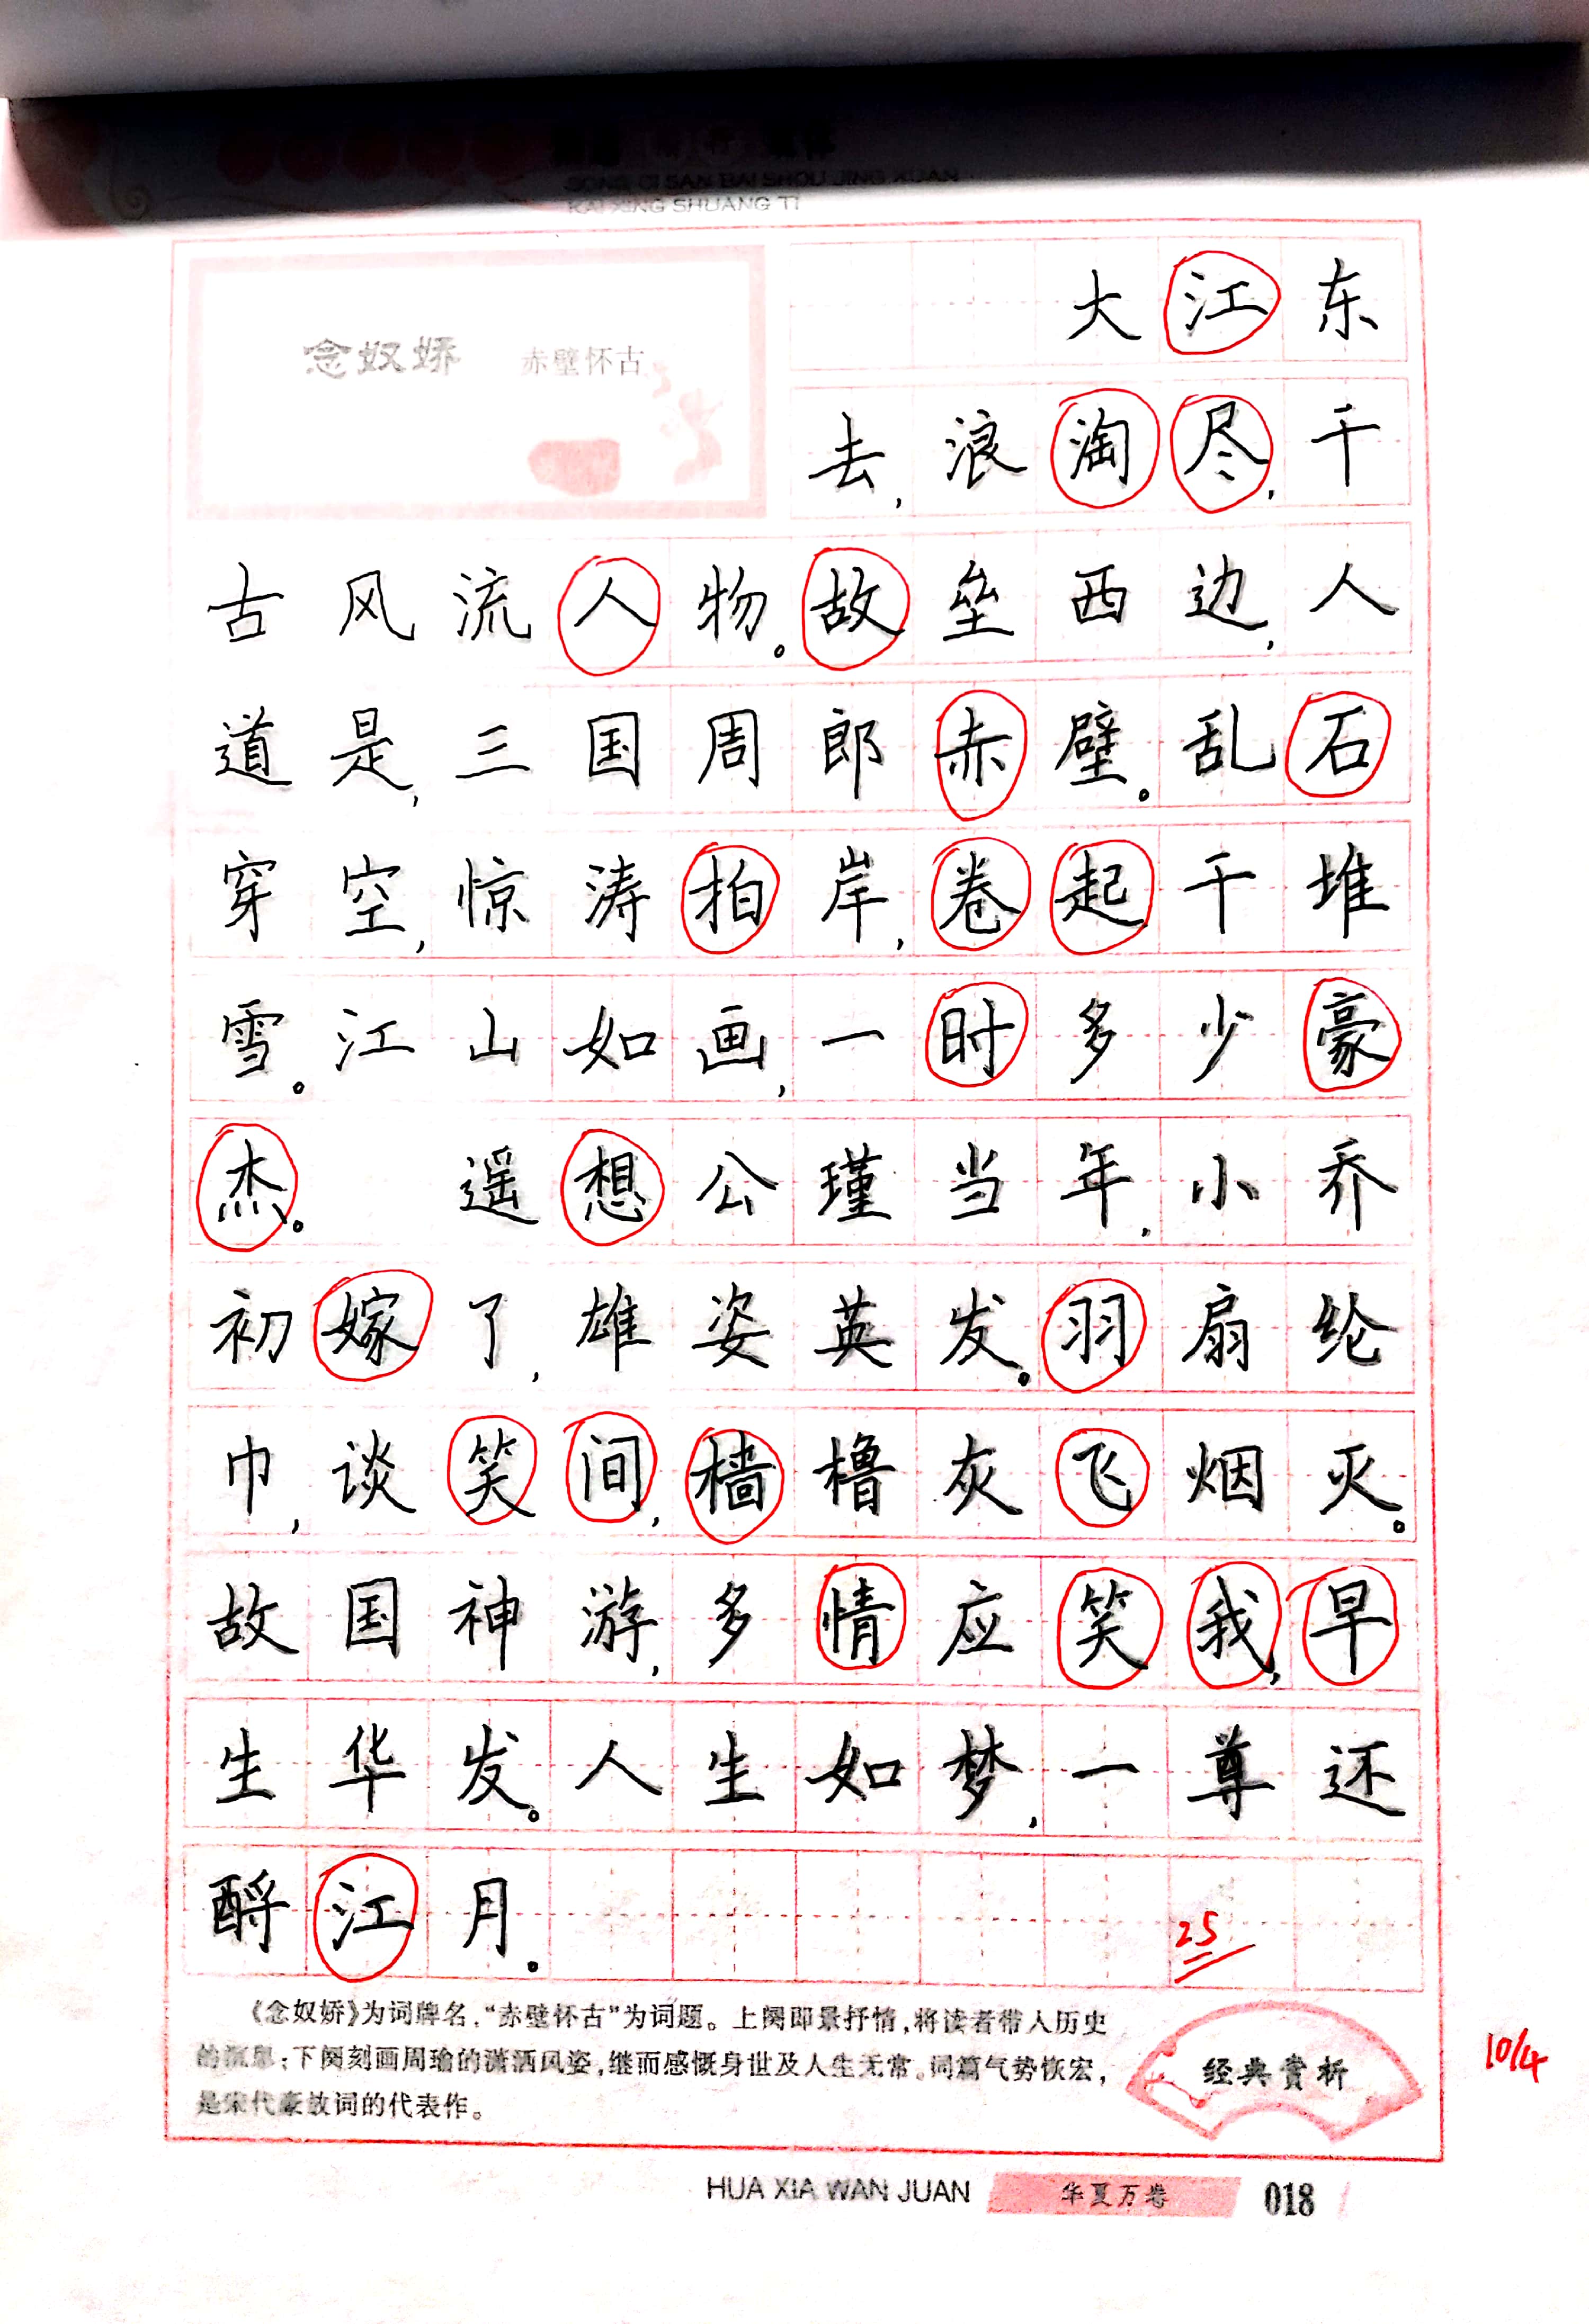 SONG CI SAN BAI SHOU JING XUAN
KAI XING SHUANG TI
念奴娇 赤壁怀古
大江东
去,浪淘尽,千
古风流人物。故垒西边,人
道是,三国周郎赤壁。乱石
穿空,惊涛拍岸,卷起千堆
雪。江山如画,一时多少豪
杰。 遥想公瑾当年,小乔
初嫁了,雄姿英发。羽扇纶
巾,谈笑间,樯橹灰飞烟灭。
故国神游,多情应笑我,早
生华发。人生如梦,一尊还
酹江月。
25
《念奴娇》为词牌名,“赤壁怀古”为词题。上阕即景抒情,将读者带入历史
的沉思;下阕刻画周瑜的潇洒风姿,继而感慨身世及人生无常。词篇气势恢宏,
是宋代豪放词的代表作。
经典赏析
10/4
HUA XIA WAN JUAN 华夏万卷 018